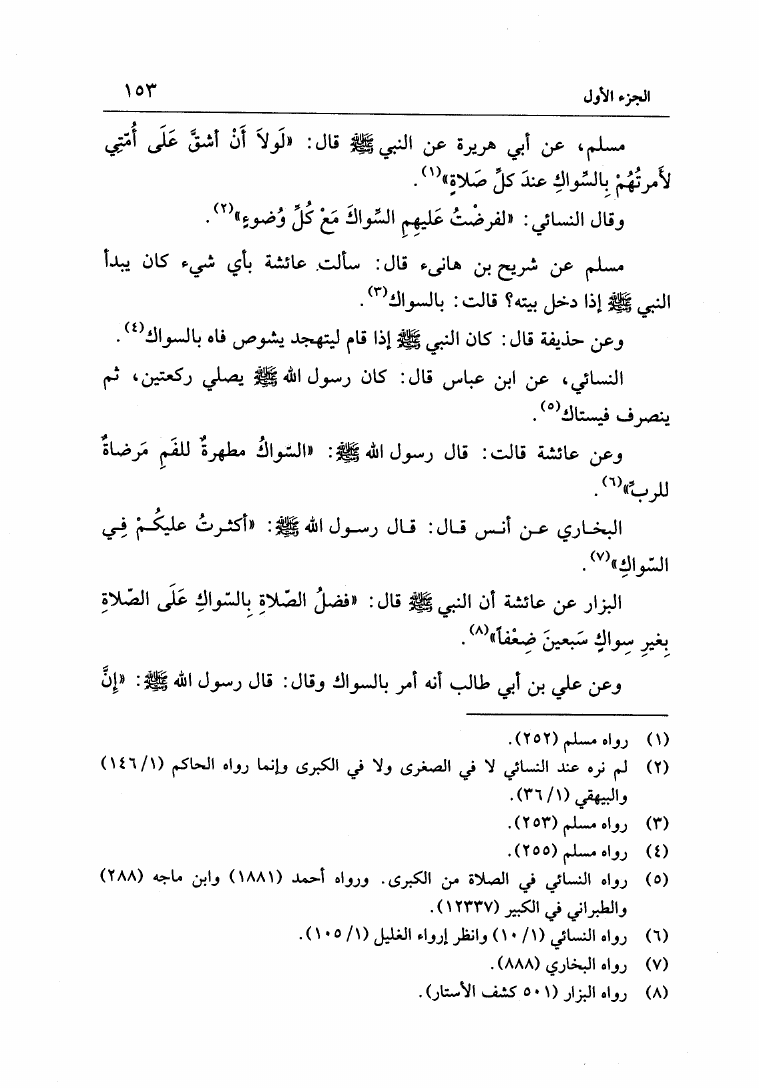 الجزء الأول ١٥٣
مسلم، عن أبي هريرة عن النبي ﷺ قال: «لَولاَ أَنْ أشقَّ عَلَى أُمّتِي
لأمرتُهُمْ بِالسِّواكِ عندَ كلِّ صَلاةٍ»(١).
وقال النسائي: «لفرضْتُ عَليهِمِ السِّواكَ مَعْ كُلِّ وُضوءٍ»(٢).
مسلم عن شريح بن هانىء قال: سألت عائشة بأي شيء كان يبدأ
النبي ﷺ إذا دخل بيته؟ قالت: بالسواك(٣).
وعن حذيفة قال: كان النبي ﷺ إذا قام ليتهجد يشوص فاه بالسواك(٤).
النسائي، عن ابن عباس قال: كان رسول الله ﷺ يصلي ركعتين، ثم
ينصرف فيستاك(٥).
وعن عائشة قالت: قال رسول الله ﷺ: «السّواكُ مطهرةٌ للفَمِ مَرضاةٌ
للربِّ»(٦).
البخاري عن أنس قال: قال رسول الله ﷺ: «أكثرتُ عليكُمْ فِي
السّواكِ»(٧).
البزار عن عائشة أن النبي ﷺ قال: «فضلُ الصّلاةِ بِالسّواكِ عَلَى الصّلاةِ
بِغيرِ سِواكٍ سَبعينَ ضِعْفاً»(٨).
وعن علي بن أبي طالب أنه أمر بالسواك وقال: قال رسول الله ﷺ: «إنَّ
(١) رواه مسلم (٢٥٢).
(٢) لم نره عند النسائي لا في الصغرى ولا في الكبرى وإنما رواه الحاكم (١/١٤٦)
والبيهقي (١/٣٦).
(٣) رواه مسلم (٢٥٣).
(٤) رواه مسلم (٢٥٥).
(٥) رواه النسائي في الصلاة من الكبرى. ورواه أحمد (١٨٨١) وابن ماجه (٢٨٨)
والطبراني في الكبير (١٢٣٣٧).
(٦) رواه النسائي (١/١٠) وانظر إرواء الغليل (١/١٠٥).
(٧) رواه البخاري (٨٨٨).
(٨) رواه البزار (٥٠١ كشف الأستار).